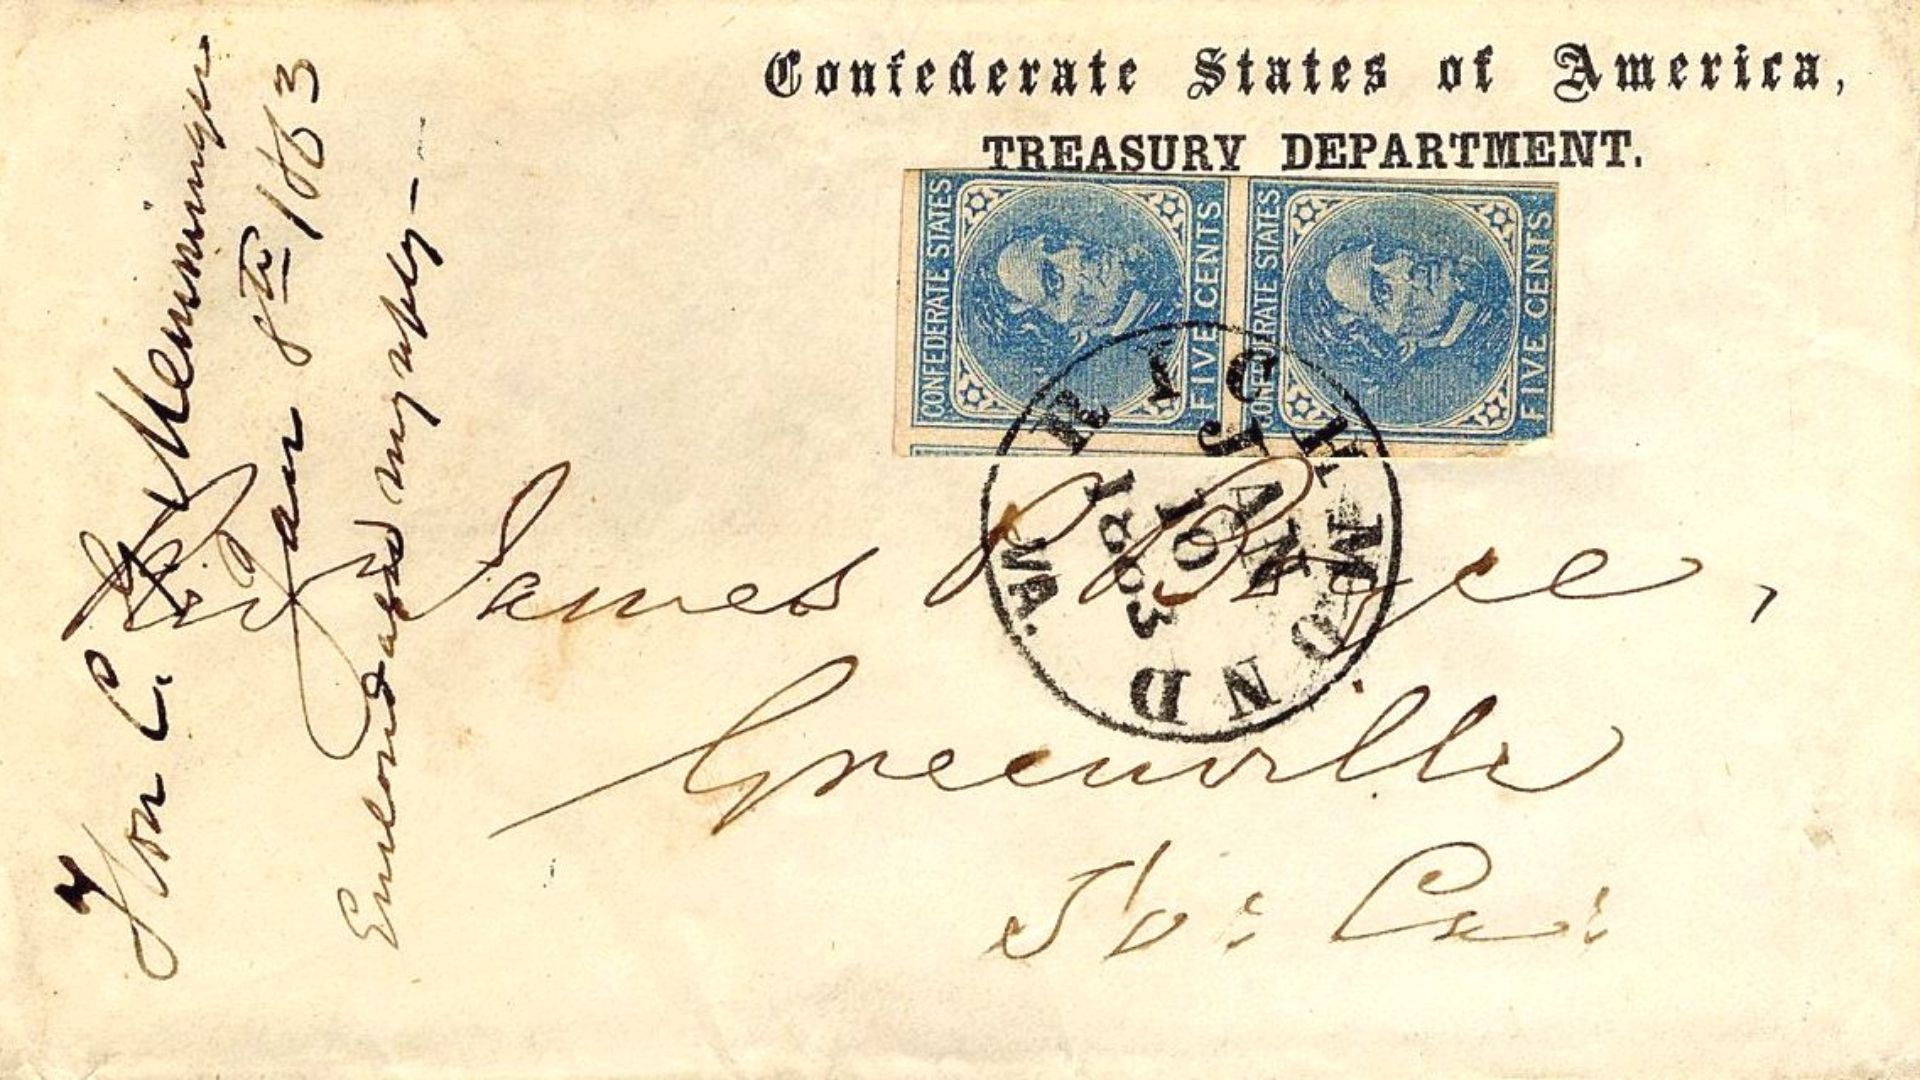 Confederate States of America,
TREASURY DEPARTMENT.
CONFEDERATE STATES
FIVE CENTS
CONFEDERATE STATES
FIVE CENTS
RICHMOND VA.
JAN
10
1863
James P Boyce,
Greenville
So: Ca:
Hon C. G. Memminger
Jan 8th 1863
Enclosed again my reply —